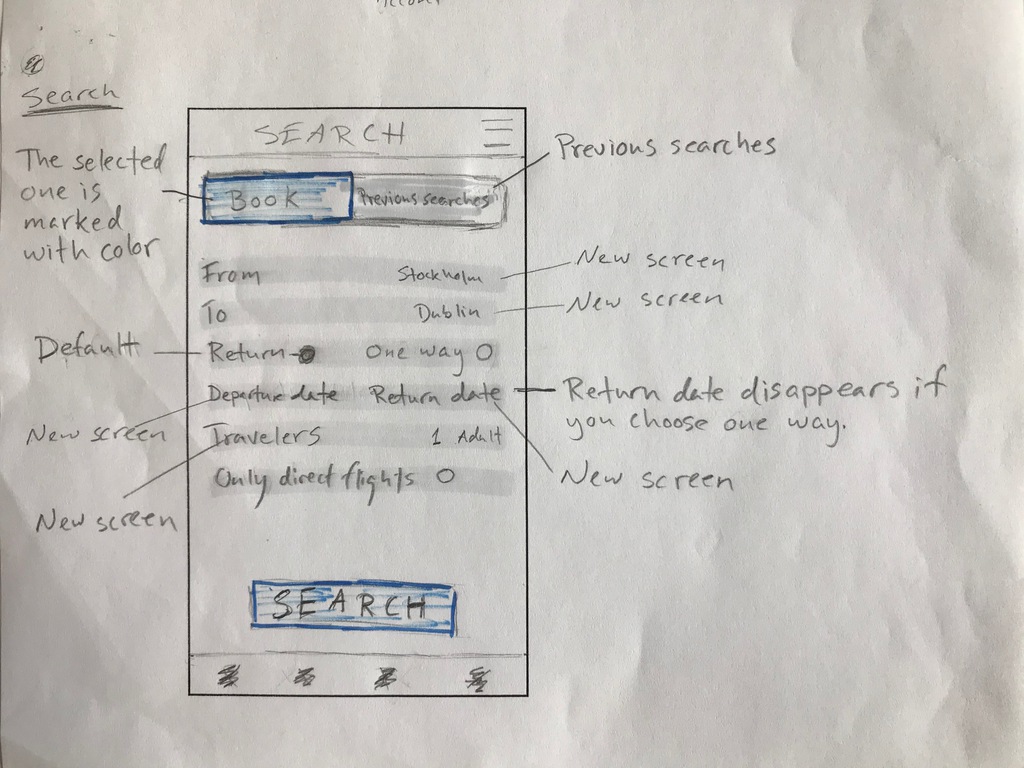 Search
SEARCH
The selected
one is
marked
with color
Previous searches
Book
Previous searches
From
Stockholm
New screen
To
Dublin
New screen
Default
Return
One way
Departure date
Return date
Return date disappears if
you choose one way.
New screen
Travelers
1 Adult
Only direct flights
New screen
New screen
SEARCH